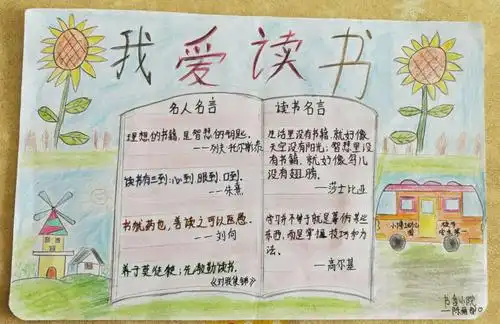 我爱读书
名人名言
理想的书籍，是智慧的钥匙。
——列夫·托尔斯泰
读书有三到：心到 眼到、口到。
——朱熹
书犹药也，善读之可以医愚。
——刘向
养子莫徒使，先教勤读书。
读书名言
生活里没有书籍，就好像
天空没有阳光；智慧里没
有书籍，就好像鸟儿
没有翅膀。
——莎士比亚
学习并不等于就是摹仿某些
东西，而是掌握技巧和方
法。
——高尔基